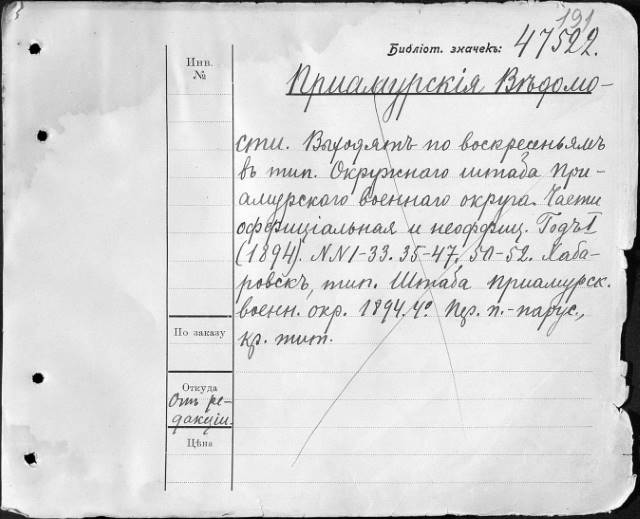 191
Библіот. значекъ: 47522.
Инв.
№
Приамурскія Вѣдомо-
сти. Выходятъ по воскресеньямъ
въ тип. Окружнаго штаба При-
амурского военнаго округа. Части
оффиціальная и неоффиц. Годъ I
(1894). NN1-33. 35-47. 50-52. Хаба-
ровскъ, тип. Штаба Приамурск.
воен. окр. 1894. 4° Пр. п.-парус.,
кр. тит.
По заказу
Откуда
Отъ ре-
дакціи.
Цѣна